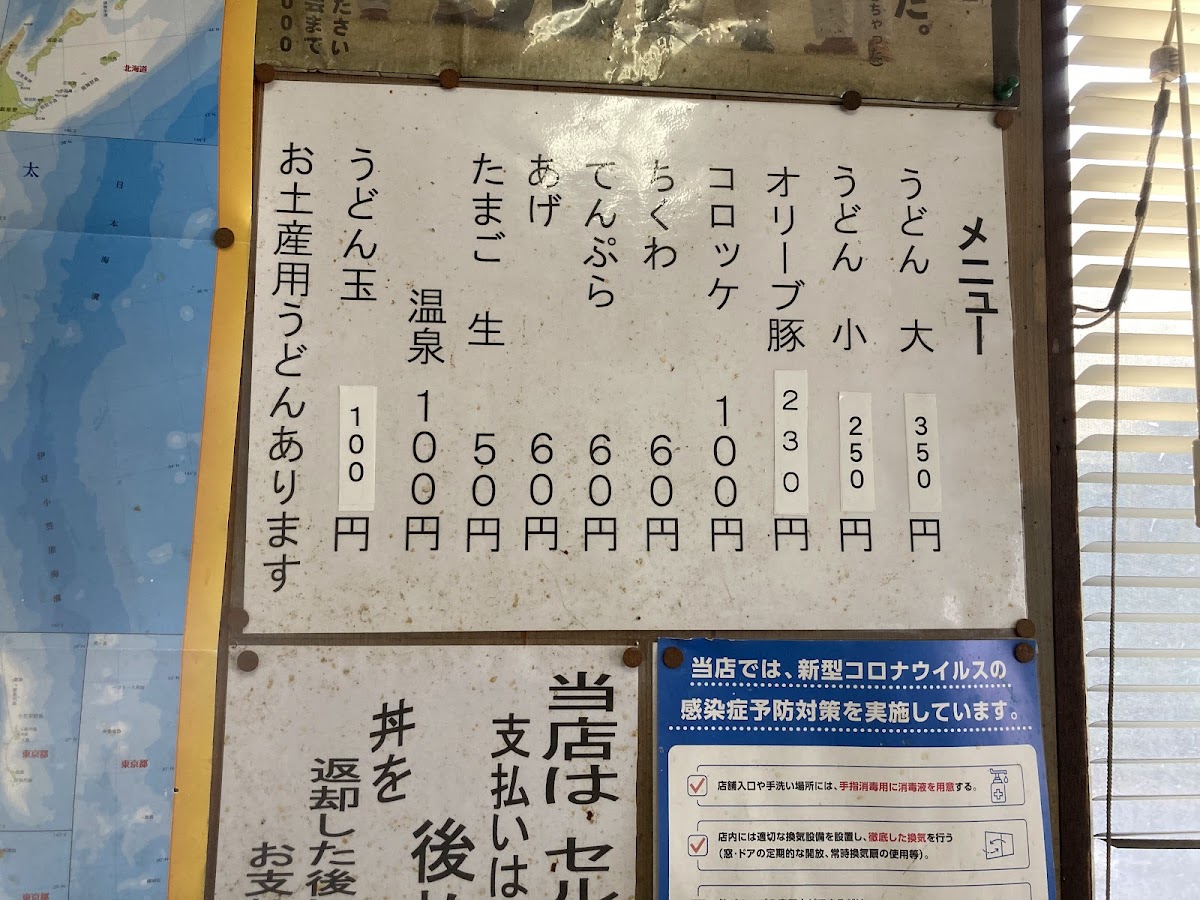 ださい
会まで、
000
た。
ちゃった
メニュー
うどん 大 350円
うどん 小 250円
オリーブ豚 230円
コロッケ 100円
ちくわ 60円
てんぷら 60円
あげ 60円
たまご 生 50円
温泉 100円
うどん玉 100円
お土産用うどんあります
北海道
太
日本海溝
伊豆小笠原海溝
当店は セル
支払いは
後
丼を
返却した後
お支
当店では、新型コロナウイルスの
感染症予防対策を実施しています。
店舗入口や手洗い場所には、手指消毒用に消毒液を用意する。
店内には適切な換気設備を設置し、徹底した換気を行う
(窓・ドアの定期的な開放、常時換気扇の使用等)。